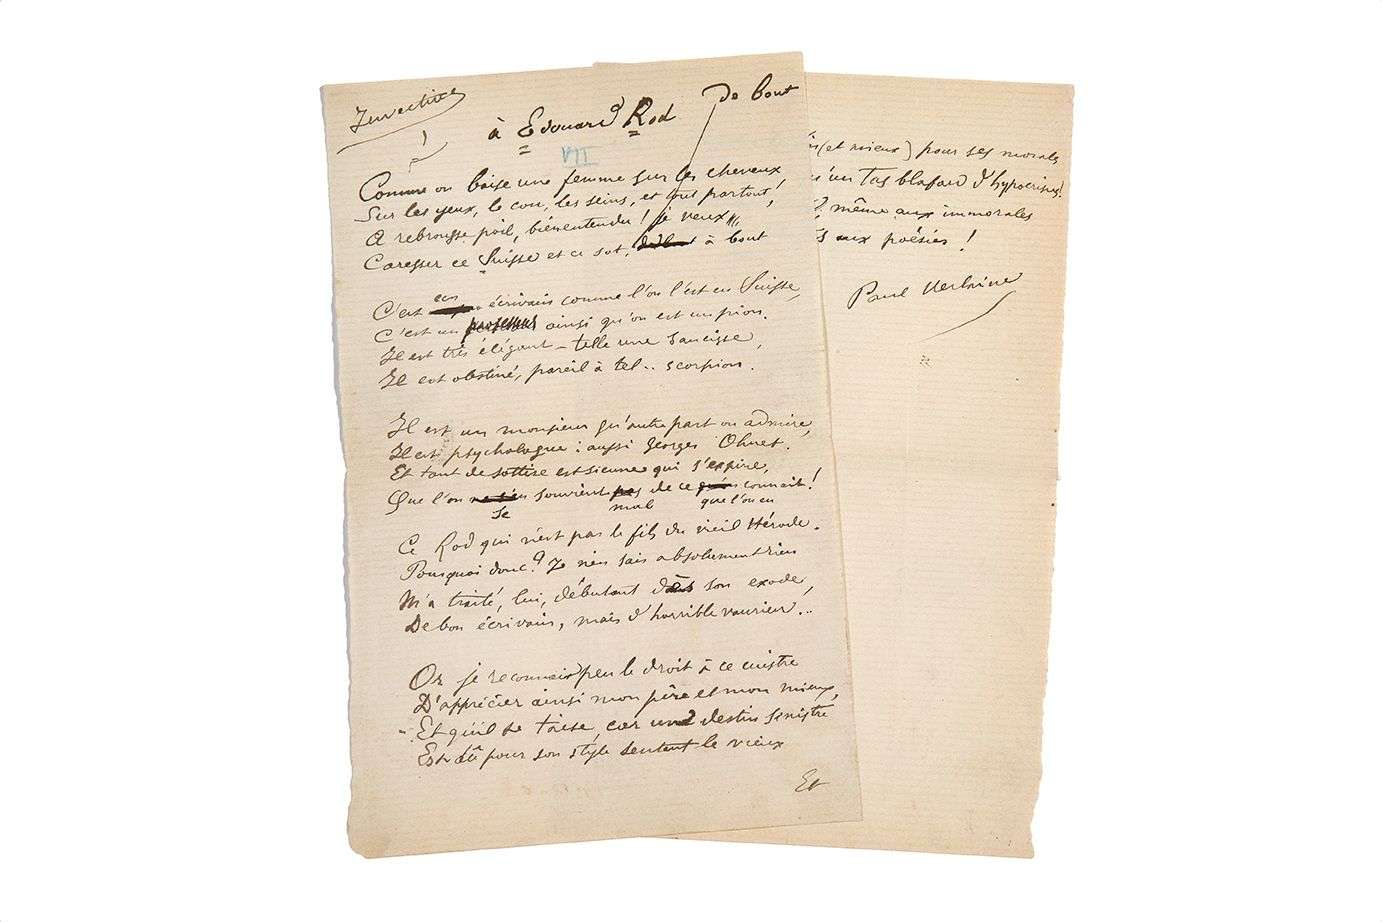 Invectives
à Edouard Rod
De bout
VII
Comme on baise une femme sur les cheveux,
Sur les yeux, le cou, les seins, et tout partout,
A rebrousse poil, bien entendu ! je veux
Caresser ce Suisse et ce sot, à bout
en
C'est écrivain comme l'on l'est en Suisse,
C'est un professeur ainsi qu'on est un pion.
Il est très élégant – telle une saucisse,
Il est obstiné, pareil à tel .. scorpion.
Il est un monsieur qu'autre part on admire,
Il est psychologue : aussi Georges Ohnet.
Et tant de sottise est sienne qui s'expire,
Que l'on souvient pas de ce connait !
se mal que l'on en
Ce Rod qui n'est pas le fils du vieil Hérode.
Pourquoi donc ? Je n'en sais absolument rien
M'a traité, lui, débutant dans son exode,
De bon écrivain, mais d'horrible vaurien...
Or je reconnais peu le droit à ce cuistre
D'apprécier ainsi mon père et mon mieux,
Et qu'il se taise, car un destin sinistre
Est dû pour son style sentant le vieux
Et
(et mieux) pour ses morales
un tas blafard d'hypocrisies !
même aux immorales
aux poésies !
Paul Verlaine